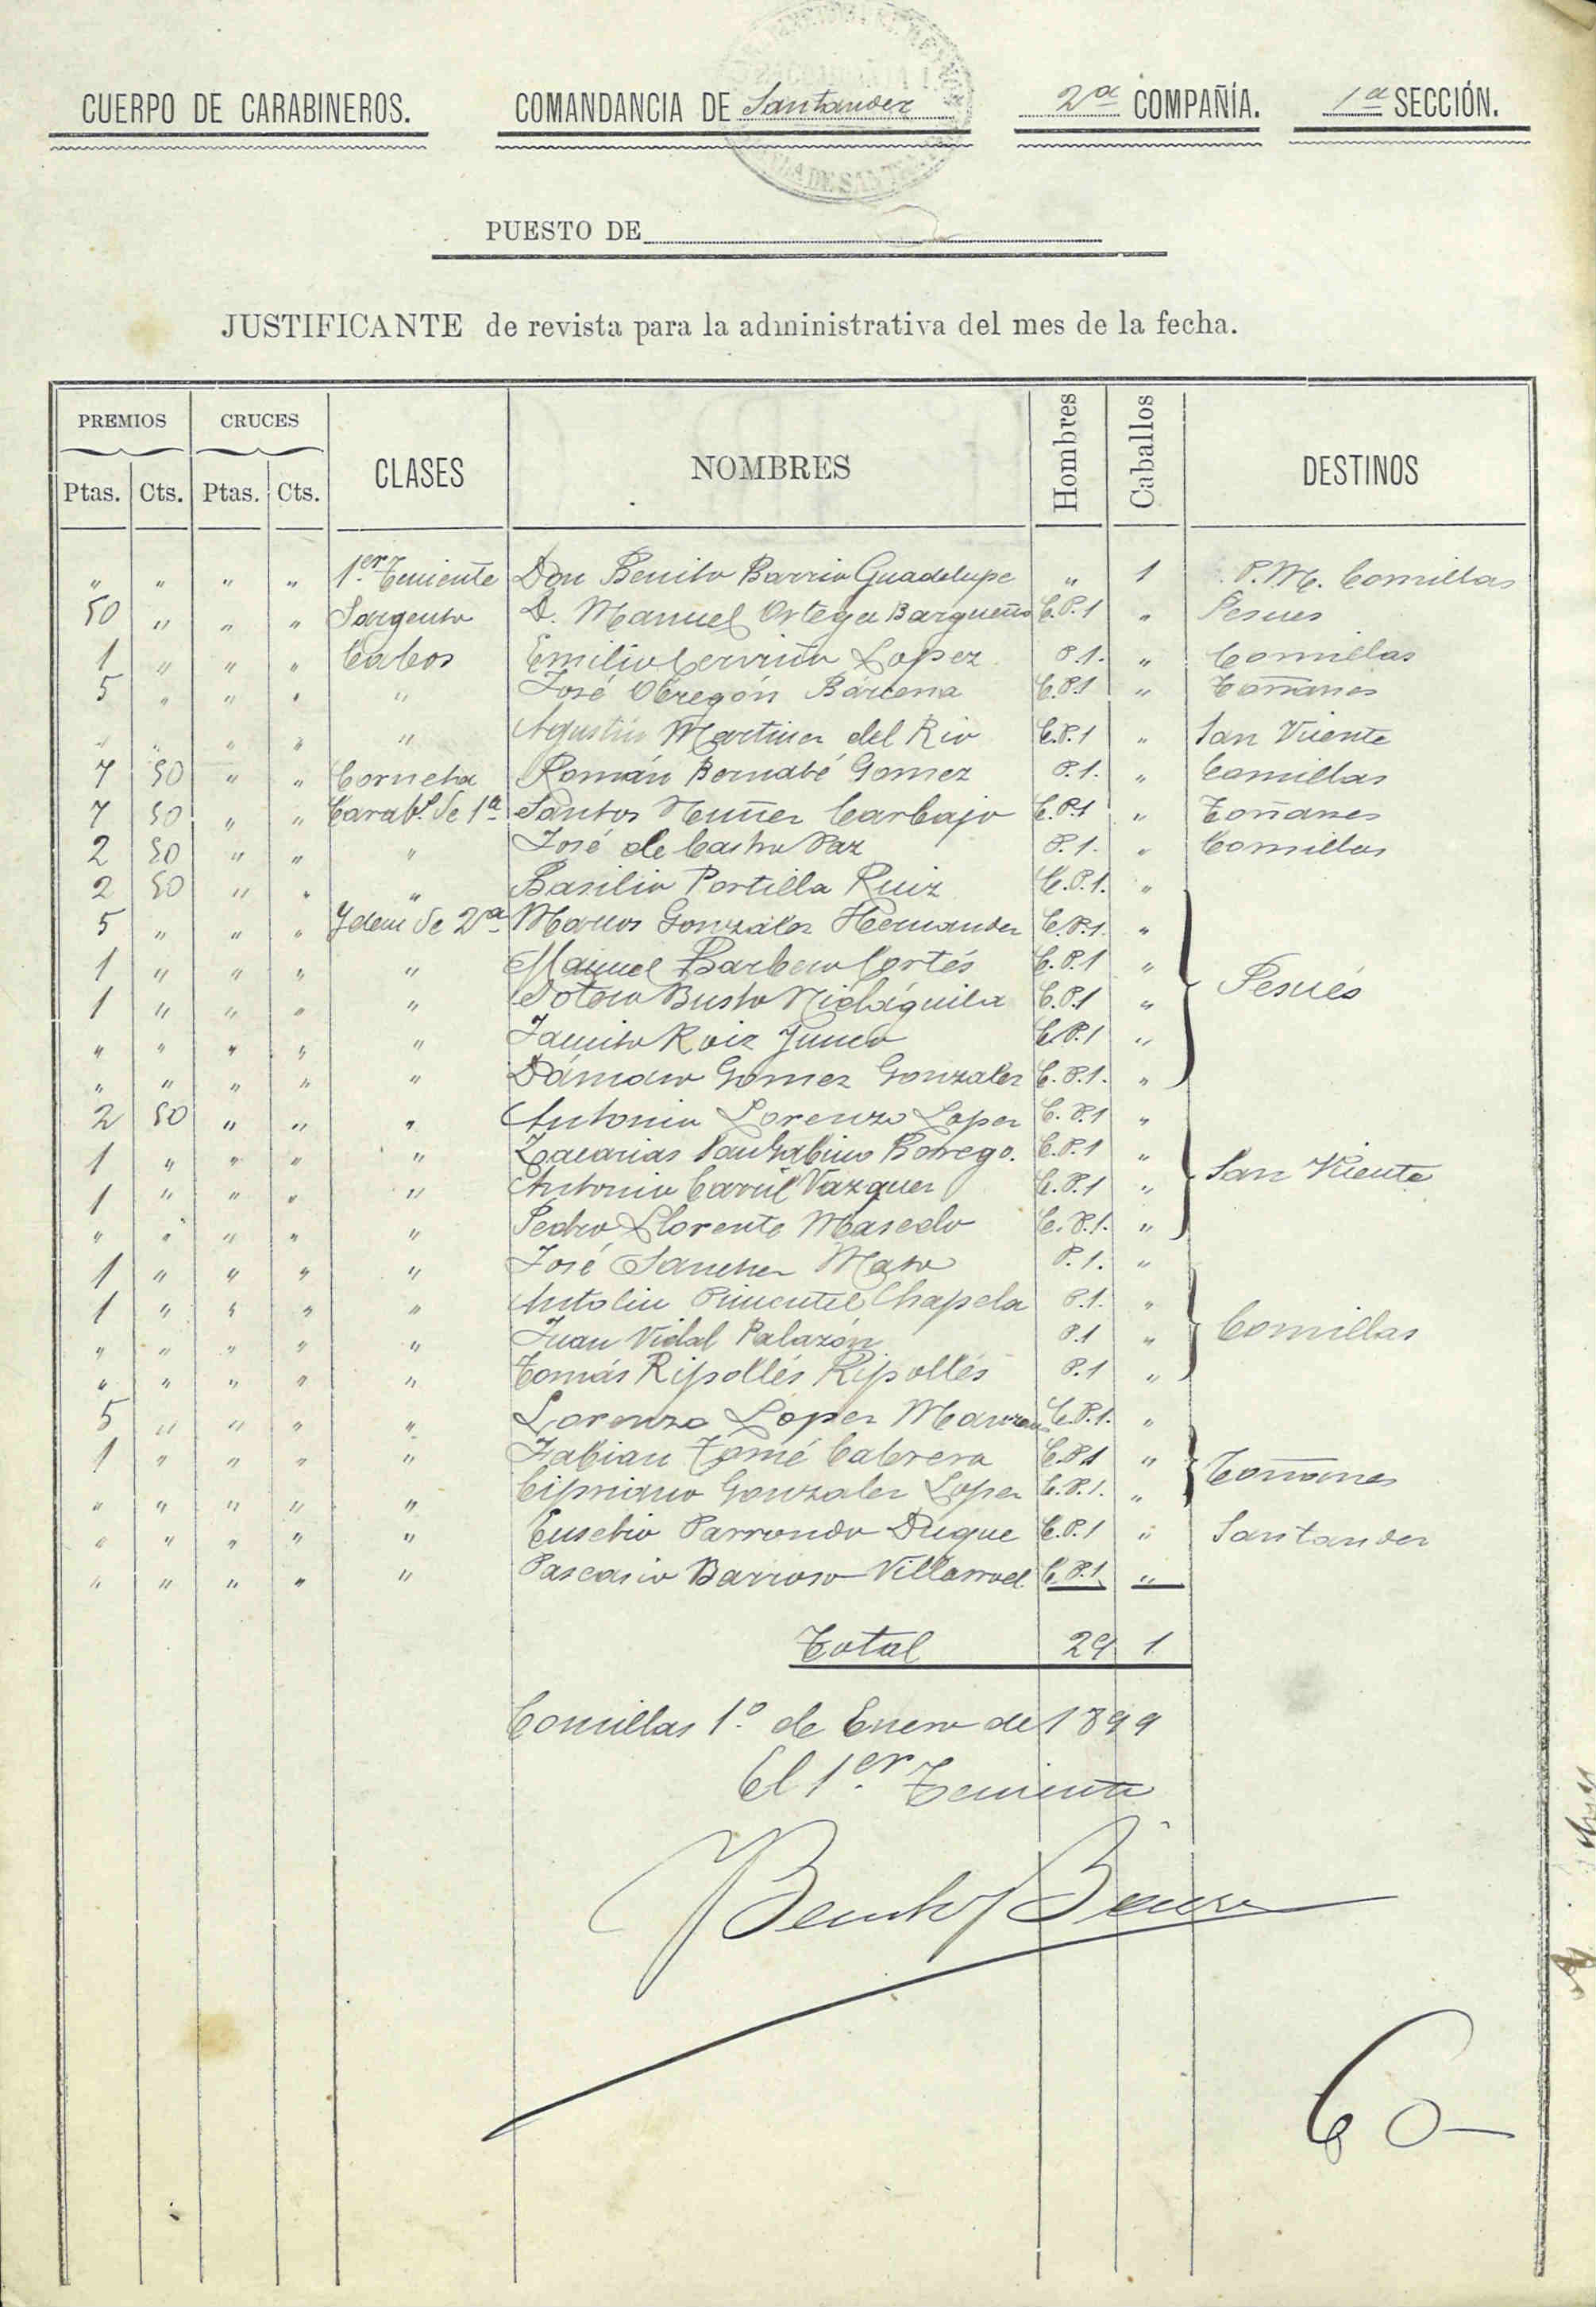 CUERPO DE CARABINEROS. COMANDANCIA DE Santander 2ª COMPAÑÍA. 1ª SECCIÓN.
PUESTO DE
JUSTIFICANTE de revista para la administrativa del mes de la fecha.
PREMIOS CRUCES CLASES NOMBRES Hombres Caballos DESTINOS
Ptas. Cts. Ptas. Cts.
" " " " 1.er Teniente Don Benito Barrio Guadelupe " 1 P.M. Comillas
50 " " " Sargento D. Manuel Ortega Bargueño C.P.1 " Pesues
1 " " " Cabos Emilio Cerviño Lopez P.1. " Comillas
5 " " " " José Obregón Bárcena C.P.1 " Toñanes
" " " " " Agustín Martinez del Rio C.P.1 " San Vicente
7 50 " " Corneta Román Bernabé Gomez P.1. " Comillas
7 50 " " Carab.º de 1ª Santos Nuñez Carbajo C.P.1 " Toñanes
2 50 " " " José de Castro Paz P.1. " Comillas
2 50 " " " Basilio Portilla Ruiz C.P.1. "
5 " " " Ydem de 2ª Marcos Gonzalez Hernandez C.P.1. "
1 " " " " Manuel Barbero Cortés C.P.1 " Pesués
1 " " " " Sotero Busto C.P.1 "
" " " " " Jacinto Ruiz Junco C.P.1 "
" " " " " Dámaso Gomez Gonzalez C.P.1. "
2 50 " " " Antonio Lorenzo Lopez C.P.1 "
1 " " " " Zacarias Borrego. C.P.1 "
1 " " " " Antonio Vazquez C.P.1 " San Vicente
" " " " " Pedro Llorente Masedo C.P.1. "
1 " " " " José Sanchez Mato P.1. "
1 " " " " Antolin Pimentel Chapela P.1. "
" " " " " Juan Vidal Palazón P.1 " Comillas
" " " " " Tomás Ripollés Ripollés P.1 "
5 " " " " Lorenzo López C.P.1. "
1 " " " " Fabian Tomé Cabrera C.P.1 " Toñanes
" " " " " Cipriano Gonzalez Lopez C.P.1. "
" " " " " Eusebio Parrondo Duque C.P.1 " Santander
" " " " " Pascasio Barroso Villarroel C.P.1. "
Total 29 1
Comillas 1.º de Enero de 1899
El 1.er Teniente
Benito Barrio